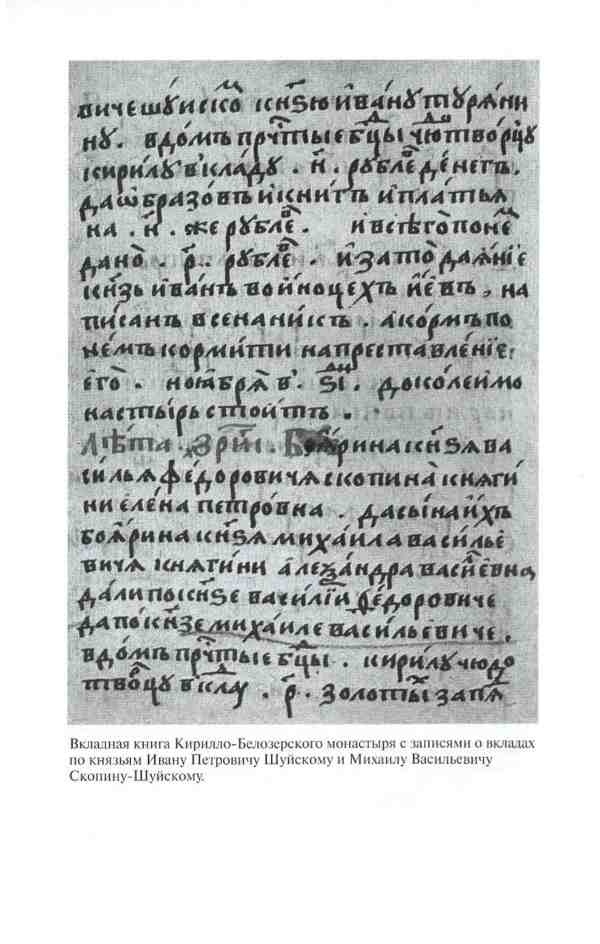 вичешуискѡ кнѕю ивану туряни
ну. вдомъ прчтые бцы чютворцу
кирилу вкладу. н. рублевъ денегъ.
да ѡбразовъ и книгъ и платья
на. н. же рублев. и всѣго по нем
дано. р. рублев. и за то даяние
кнзь иванъ во иноцехъ иев, на
писанъ в сенаникъ. а кормъ по
немъ кормити на преставление
его. ноября в. ѕі. доколе и мо
настырь стоитъ.
Лѣта. зри. боярина кнѕя ва
силья федоровичя скопина княги
ни елена петровна. да сына ихъ
боярина кнѕя михаила василье
вичя княгини алеѯандра васильевна
дали по кнѕе василии федоровиче
да по кнзе михаиле васильевиче.
в домъ прчтые бцы. кирилу чюдо
творцу вклад. р. золотых за пя
Вкладная книга Кирилло-Белозерского монастыря с записями о вкладах
по князьям Ивану Петровичу Шуйскому и Михаилу Васильевичу
Скопину-Шуйскому.